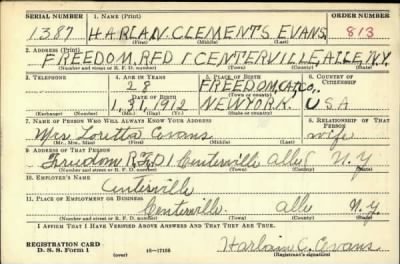 SERIAL NUMBER 1. NAME (Print) ORDER NUMBER
1387 HARLAN CLEMENTS EVANS 813
(First) (Middle) (Last)
2. ADDRESS (Print)
FREEDOM, RFD 1 CENTERVILLE, ALLE, N.Y.
(Number and street or R. F. D. number) (Town) (County) (State)
3. TELEPHONE 4. AGE IN YEARS 5. PLACE OF BIRTH 6. COUNTRY OF CITIZENSHIP
28 FREEDOM, CATCO,
DATE OF BIRTH (Town or county)
1, 31, 1912 NEW YORK. USA
(Exchange) (Number) (Mo.) (Day) (Yr.) (State or country)
7. NAME OF PERSON WHO WILL ALWAYS KNOW YOUR ADDRESS 8. RELATIONSHIP OF THAT PERSON
Mrs Loretta Evans wife
(Mr., Mrs., Miss) (First) (Middle) (Last)
9. ADDRESS OF THAT PERSON
Freedom R.F.D 1 Centerville N.Y
(Number and street or R. F. D. number) (Town) (County) (State)
10. EMPLOYER'S NAME
Centerville
11. PLACE OF EMPLOYMENT OR BUSINESS
Centerville. Alle N.Y.
(Number and street or R. F. D. number) (Town) (County) (State)
I AFFIRM THAT I HAVE VERIFIED ABOVE ANSWERS AND THAT THEY ARE TRUE.
REGISTRATION CARD
D. S. S. Form 1 (over) 16—17105 Harlain C. Evans
(Registrant's signature)